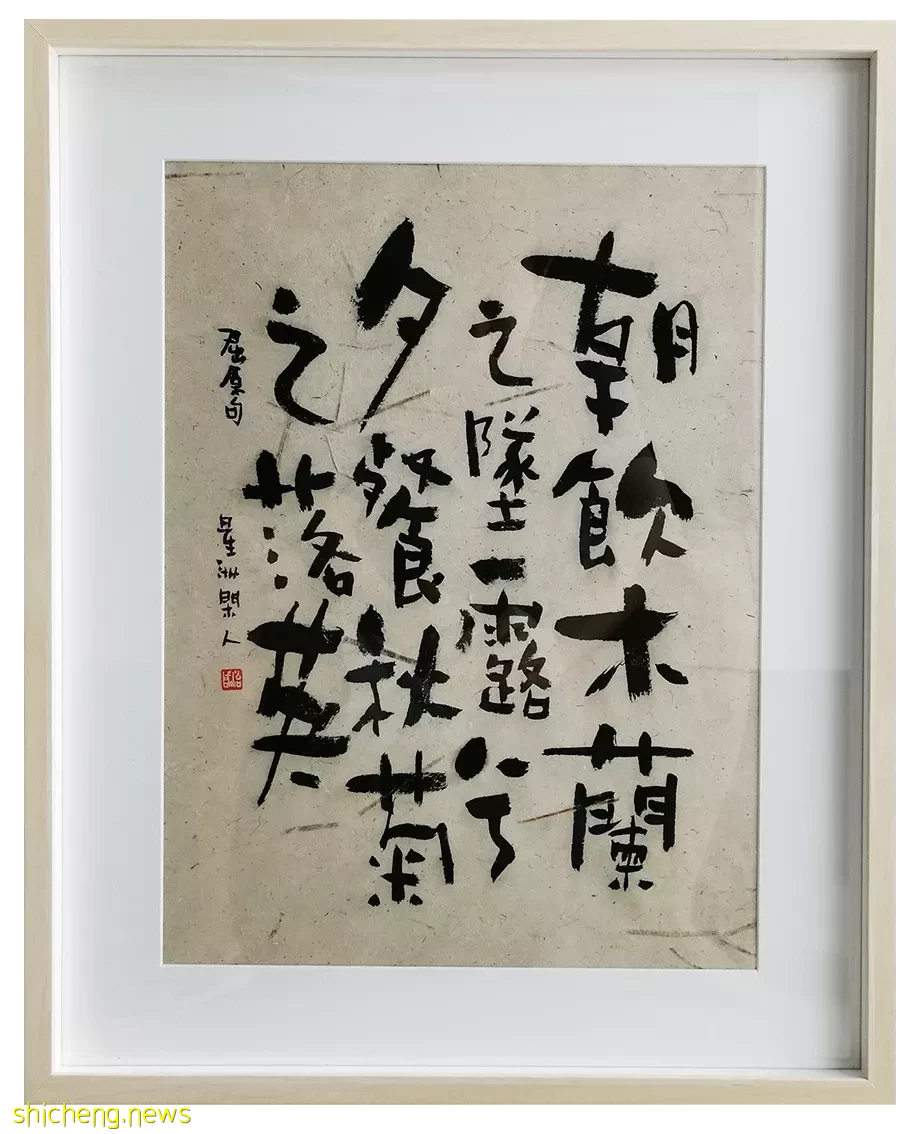 朝飲木蘭
之墜露兮
夕餐秋菊
之落英
屈原句
星洲閑人
shicheng.news